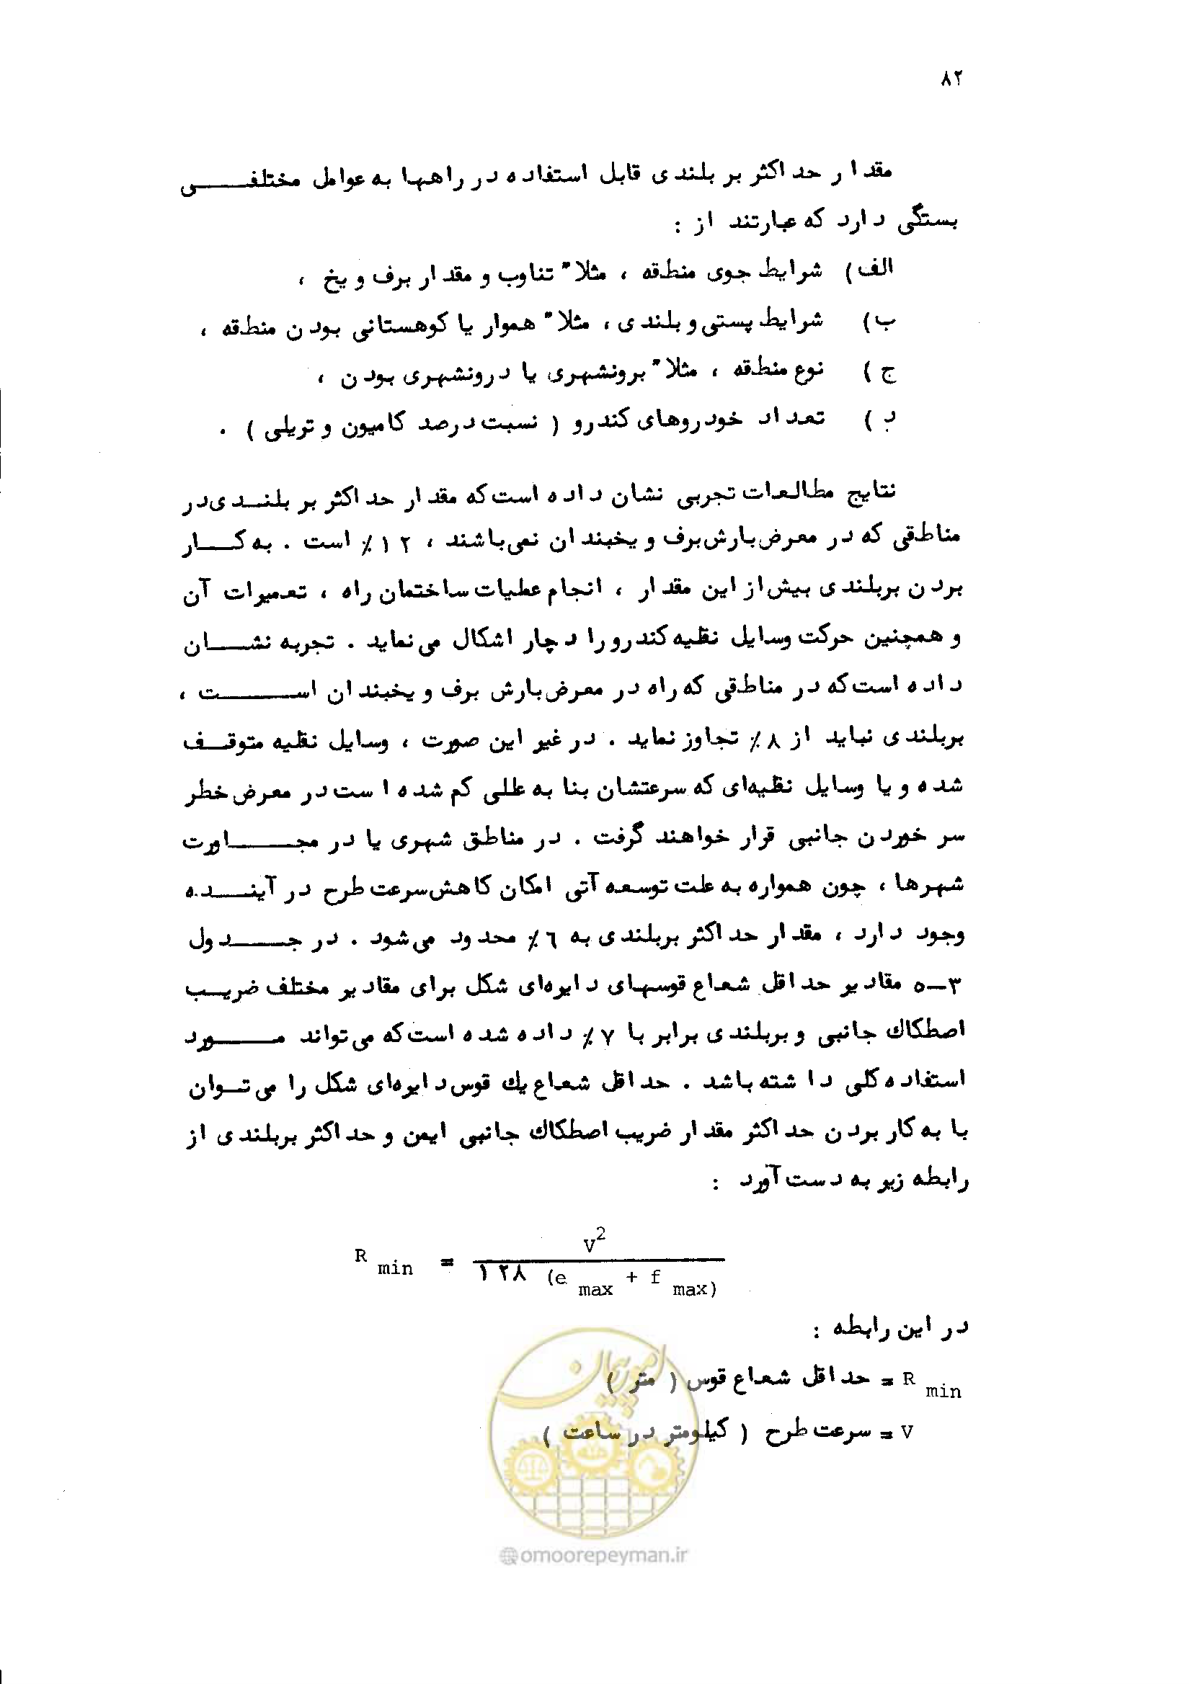 ۸۲
مقدار حداکثر بربلندی قابل استفاده در راهها به عوامل مختلفی
بستگی دارد که عبارتند از :
الف) شرایط جوی منطقه ، مثلا" تناوب و مقدار برف و یخ ،
ب) شرایط پستی و بلندی ، مثلا" هموار یا کوهستانی بودن منطقه ،
ج) نوع منطقه ، مثلا" برونشهری یا درونشهری بودن ،
د) تعداد خودروهای کندرو ( نسبت درصد کامیون و تریلی ) .
نتایج مطالعات تجربی نشان داده است که مقدار حداکثر بربلندی در
مناطقی که در معرض بارش برف و یخبندان نمی‌باشند ، ۱۲٪ است . به کار
بردن بربلندی بیش از این مقدار ، انجام عملیات ساختمان راه ، تعمیرات آن
و همچنین حرکت وسایل نقلیه کندرو را دچار اشکال می‌نماید . تجربه نشان
داده است که در مناطقی که راه در معرض بارش برف و یخبندان است ،
بربلندی نباید از ۸٪ تجاوز نماید . در غیر این صورت ، وسایل نقلیه متوقف
شده و یا وسایل نقلیه‌ای که سرعتشان بنا به عللی کم شده است در معرض خطر
سر خوردن جانبی قرار خواهند گرفت . در مناطق شهری یا در مجاورت
شهرها ، چون همواره به علت توسعه آتی امکان کاهش سرعت طرح در آینده
وجود دارد ، مقدار حداکثر بربلندی به ۶٪ محدود می‌شود . در جدول
۳-۵ مقادیر حداقل شعاع قوسهای دایره‌ای شکل برای مقادیر مختلف ضریب
اصطکاک جانبی و بربلندی برابر با ۷٪ داده شده است که می‌تواند مورد
استفاده کلی داشته باشد . حداقل شعاع یک قوس دایره‌ای شکل را می‌توان
با به کار بردن حداکثر مقدار ضریب اصطکاک جانبی ایمن و حداکثر بربلندی از
رابطه زیر به دست آورد :
R min = V² / ۱۲۸ (e max + f max)
در این رابطه :
R min = حداقل شعاع قوس ( متر )
V = سرعت طرح ( کیلومتر در ساعت )
امور پیمان
@omoorepeyman.ir